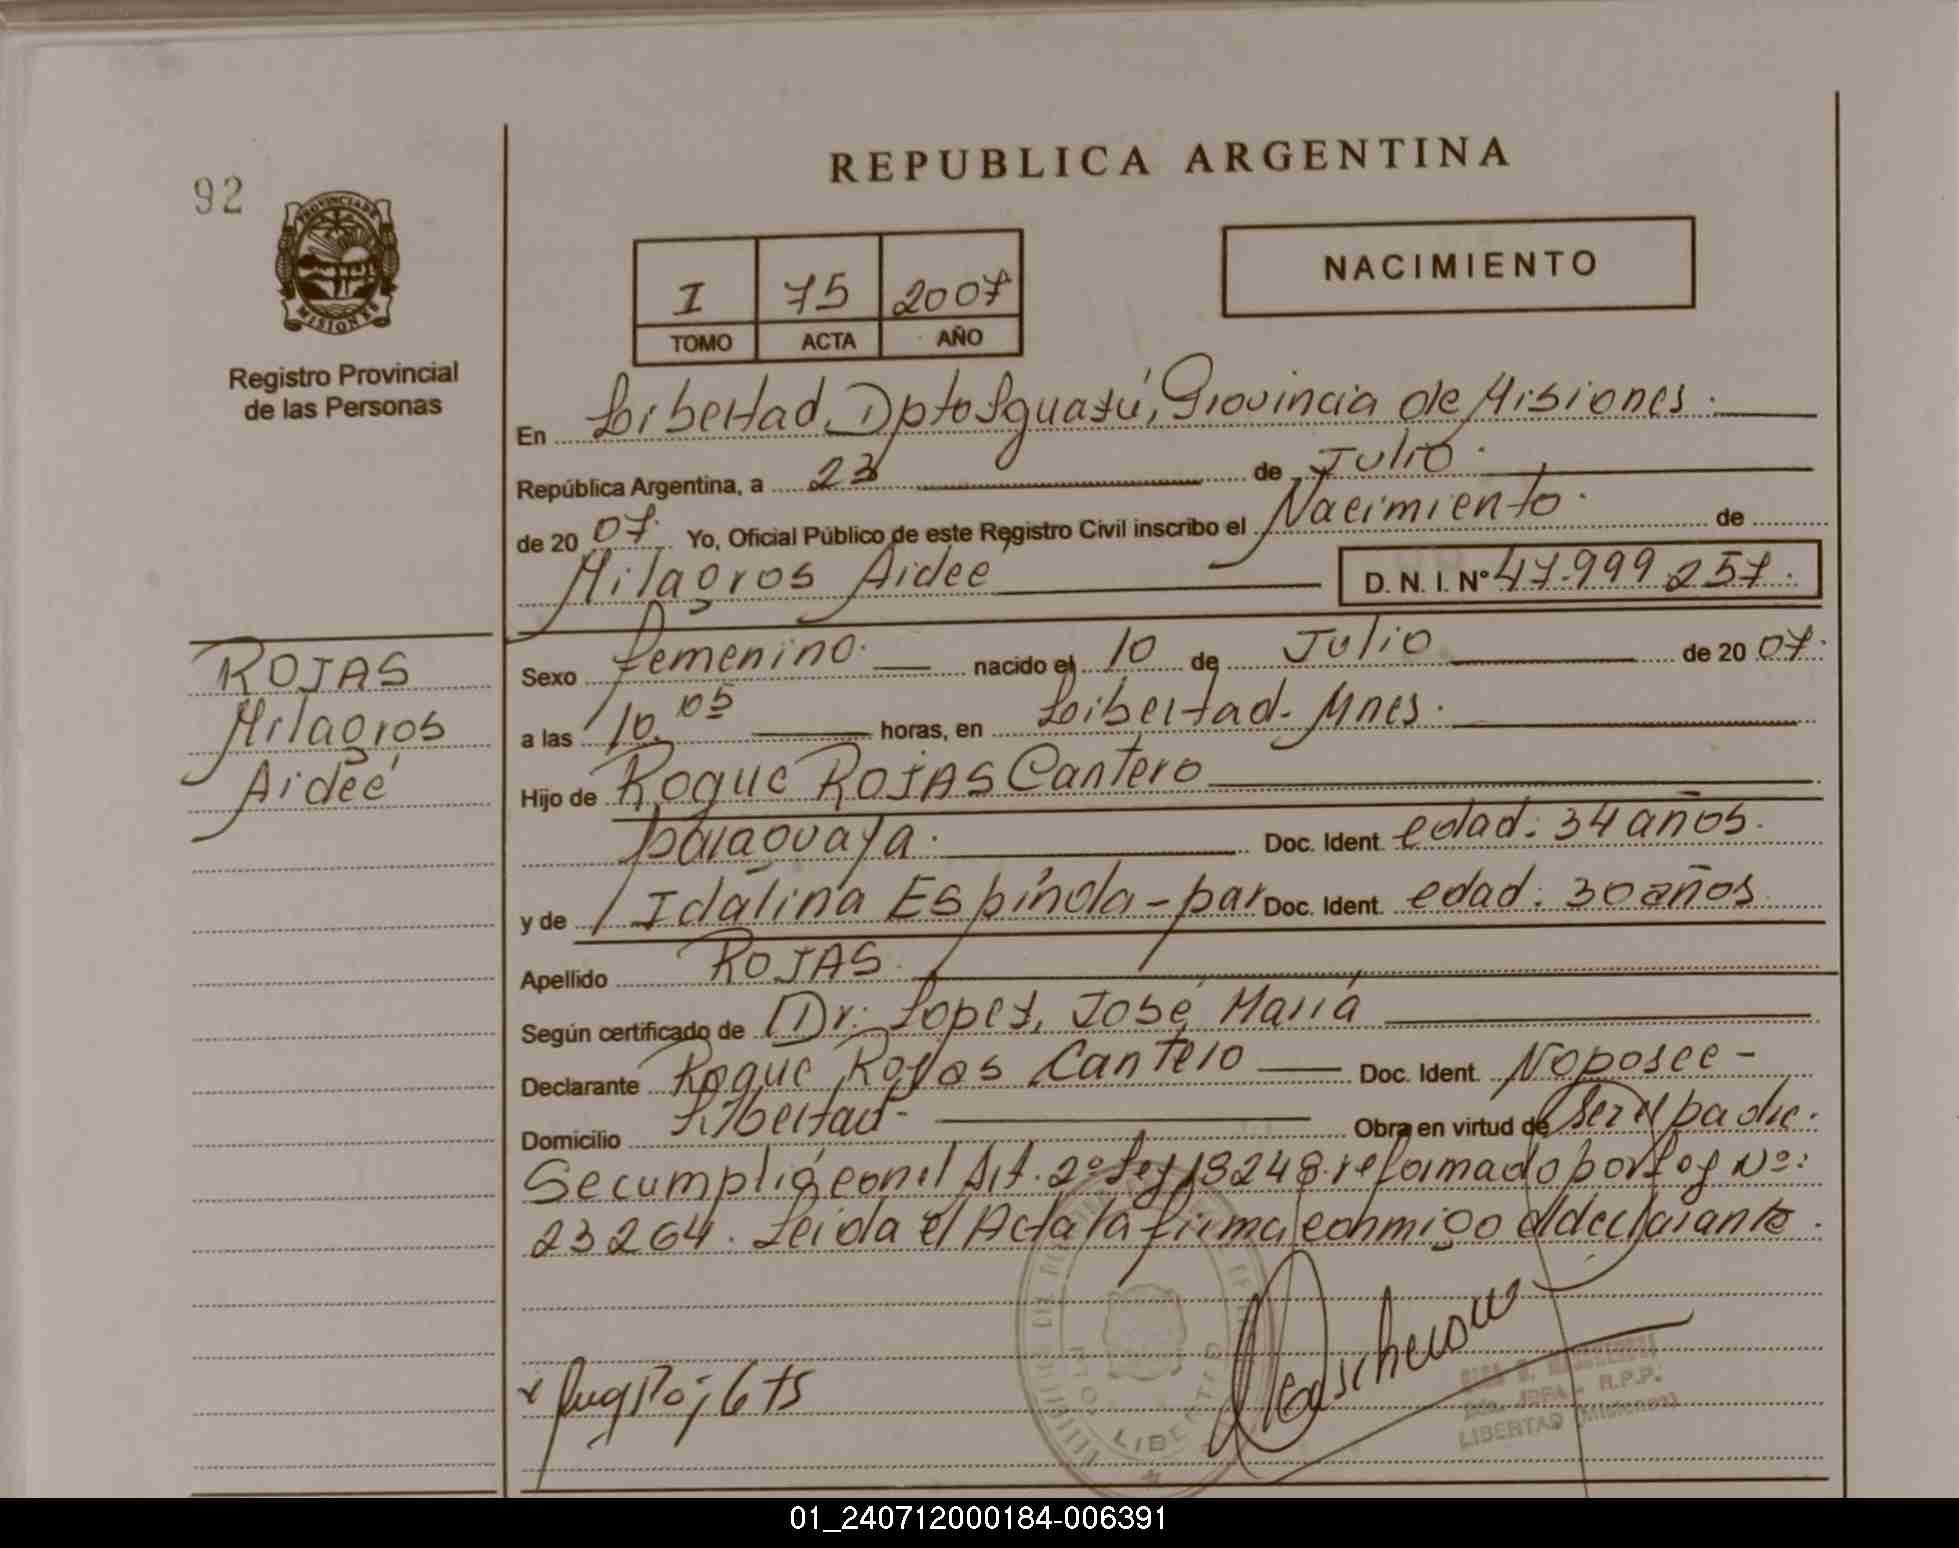 REPUBLICA ARGENTINA
92
PROVINCIA DE
MISIONES
Registro Provincial
de las Personas
I 75 2007
TOMO ACTA AÑO
NACIMIENTO
En Libertad, Dpto Iguazú, Provincia de Misiones.
República Argentina, a 23 de Julio.
de 20 07. Yo, Oficial Público de este Registro Civil inscribo el Nacimiento. de
Milagros Aidee D. N. I. Nº 47.999.257.
ROJAS
Milagros
Aideé
Sexo femenino. nacido el 10 de Julio de 20 07.
a las 10.05 horas, en Libertad - Mnes.
Hijo de Roque ROJAS Cantero
paraguaya. Doc. Ident. edad: 34 años.
y de Idalina Espínola - par Doc. Ident. edad: 30 años.
Apellido ROJAS.
Según certificado de Dr: Lopez, José María
Declarante Roque Rojas Cantero Doc. Ident. No posee -
Domicilio Libertad - Obra en virtud de ser el padre.
Se cumplió con el Art. 2º Ley 13248 reformado por Ley Nº:
23264. Leida el Acta la firma conmigo el declarante.
LIBERTAD
R.P.P.
LIBERTAD (Misiones)
01_240712000184-006391